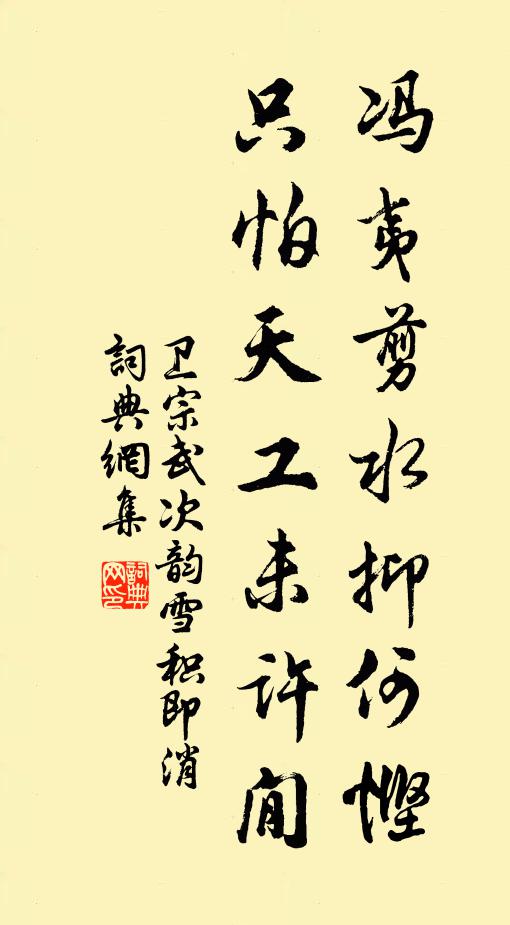 冯夷剪水抑何悭
只怕天工未许闲
卫宗武次韵雪积即消
詞典網集
詞典网印